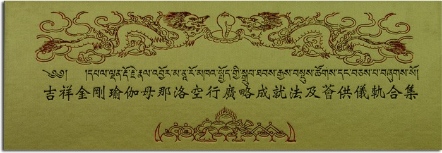 ༄༅༅། །དཔལ་ལྡན་རྡོ་རྗེ་རྣལ་འབྱོར་མ་ནཱ་རོ་མཁའ་སྤྱོད་ཀྱི་སྒྲུབ་ཐབས་རྒྱས་བསྡུས་ཚོགས་དང་བཅས་པ་བཞུགས་སོ།
吉祥金剛瑜伽母那洛空行廣略成就法及薈供儀軌合集